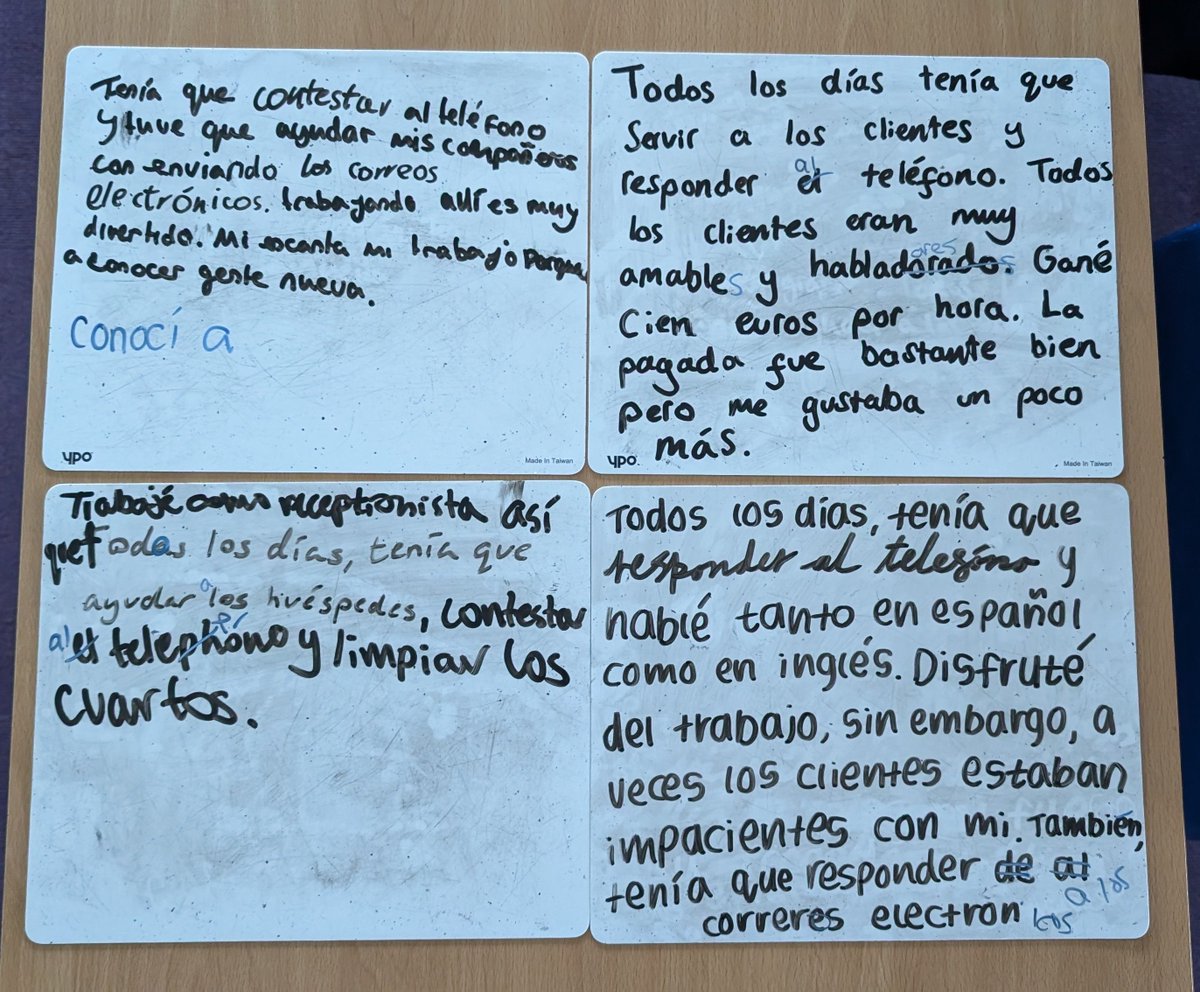 Tenía que contestar al teléfono
y tuve que ayudar mis compañeros
con enviando los correos
electrónicos. trabajando allí es muy
divertido. Mi encanta mi trabajo porque
a conocer gente nueva.
conocí a
ypo
Made in Taiwan
Todos los días tenía que
servir a los clientes y
al
responder el teléfono. Todos
los clientes eran muy
ores
amables y habladorados. Gané
cien euros por hora. La
pagada fue bastante bien
pero me gustaba un poco
más.
ypo
Made in Taiwan
Trabajé como receptionista así
que Todos los días, tenía que
ayudar a los huéspedes, contestar
al el telephono y limpiar los
cuartos.
Todos los días, tenía que
responder al telefóno y
hablé tanto en español
como en inglés. Disfruté
del trabajo, sin embargo, a
veces los clientes estaban
impacientes con mi. También,
tenía que responder de al
a los
correres electron icos